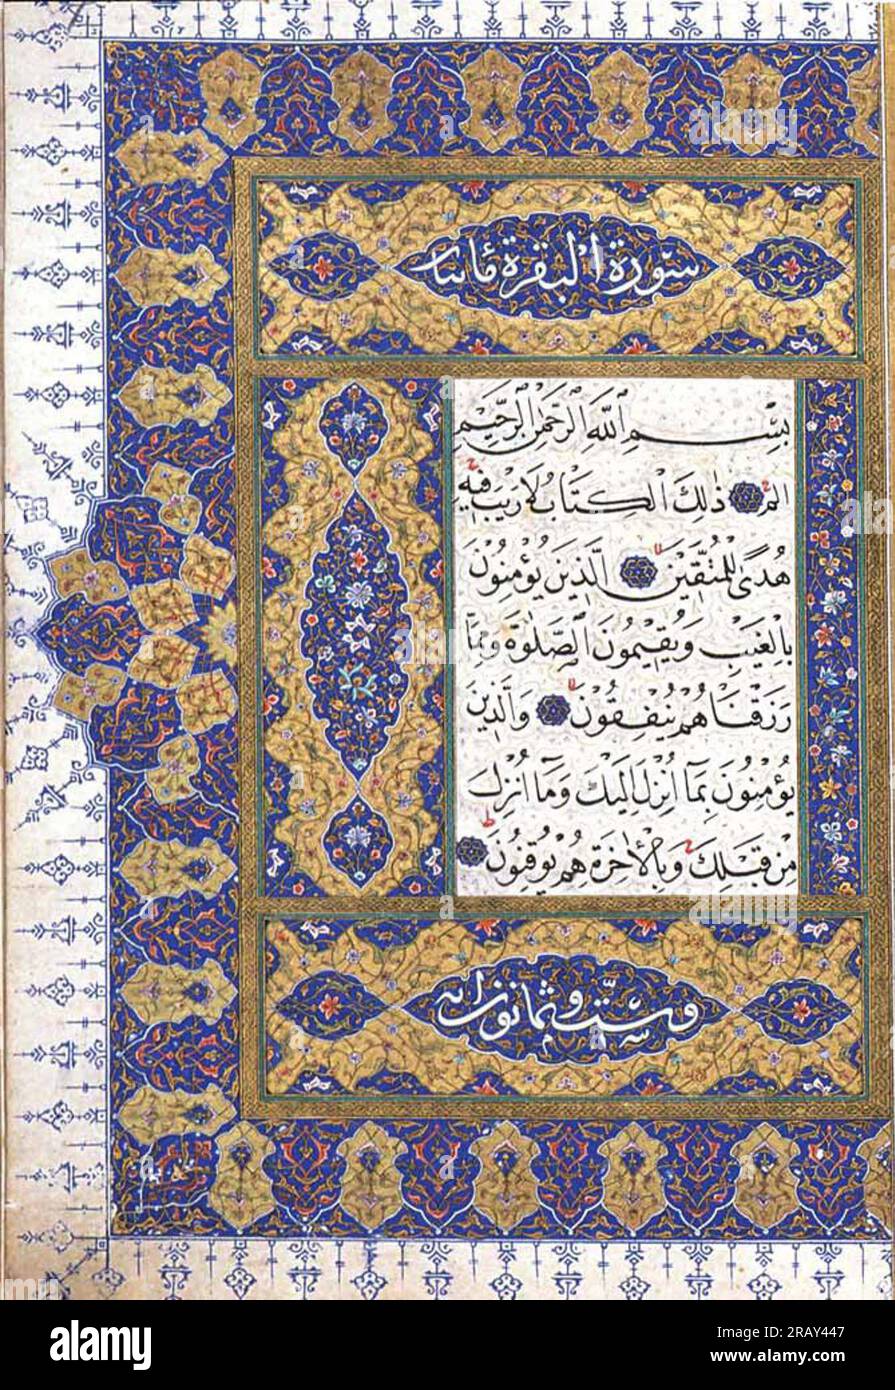 سورة البقرة مائتان
بِسْمِ ٱللَّهِ ٱلرَّحْمٰنِ ٱلرَّحِيمِ
الم ذٰلِكَ الْكِتَابُ لَارَيْبَ فِيهِ
هُدًى لِلْمُتَّقِينَ الَّذِينَ يُؤْمِنُونَ
بِالْغَيْبِ وَيُقِيمُونَ الصَّلٰوةَ وَمِمَّا
رَزَقْنَاهُمْ يُنْفِقُونَ وَالَّذِينَ
يُؤْمِنُونَ بِمَا أُنْزِلَ إِلَيْكَ وَمَا أُنْزِلَ
مِنْ قَبْلِكَ وَبِالْاٰخِرَةِ هُمْ يُوقِنُونَ
وستّ وثمانون اية
alamy
Image ID: 2RAY447
www.alamy.com